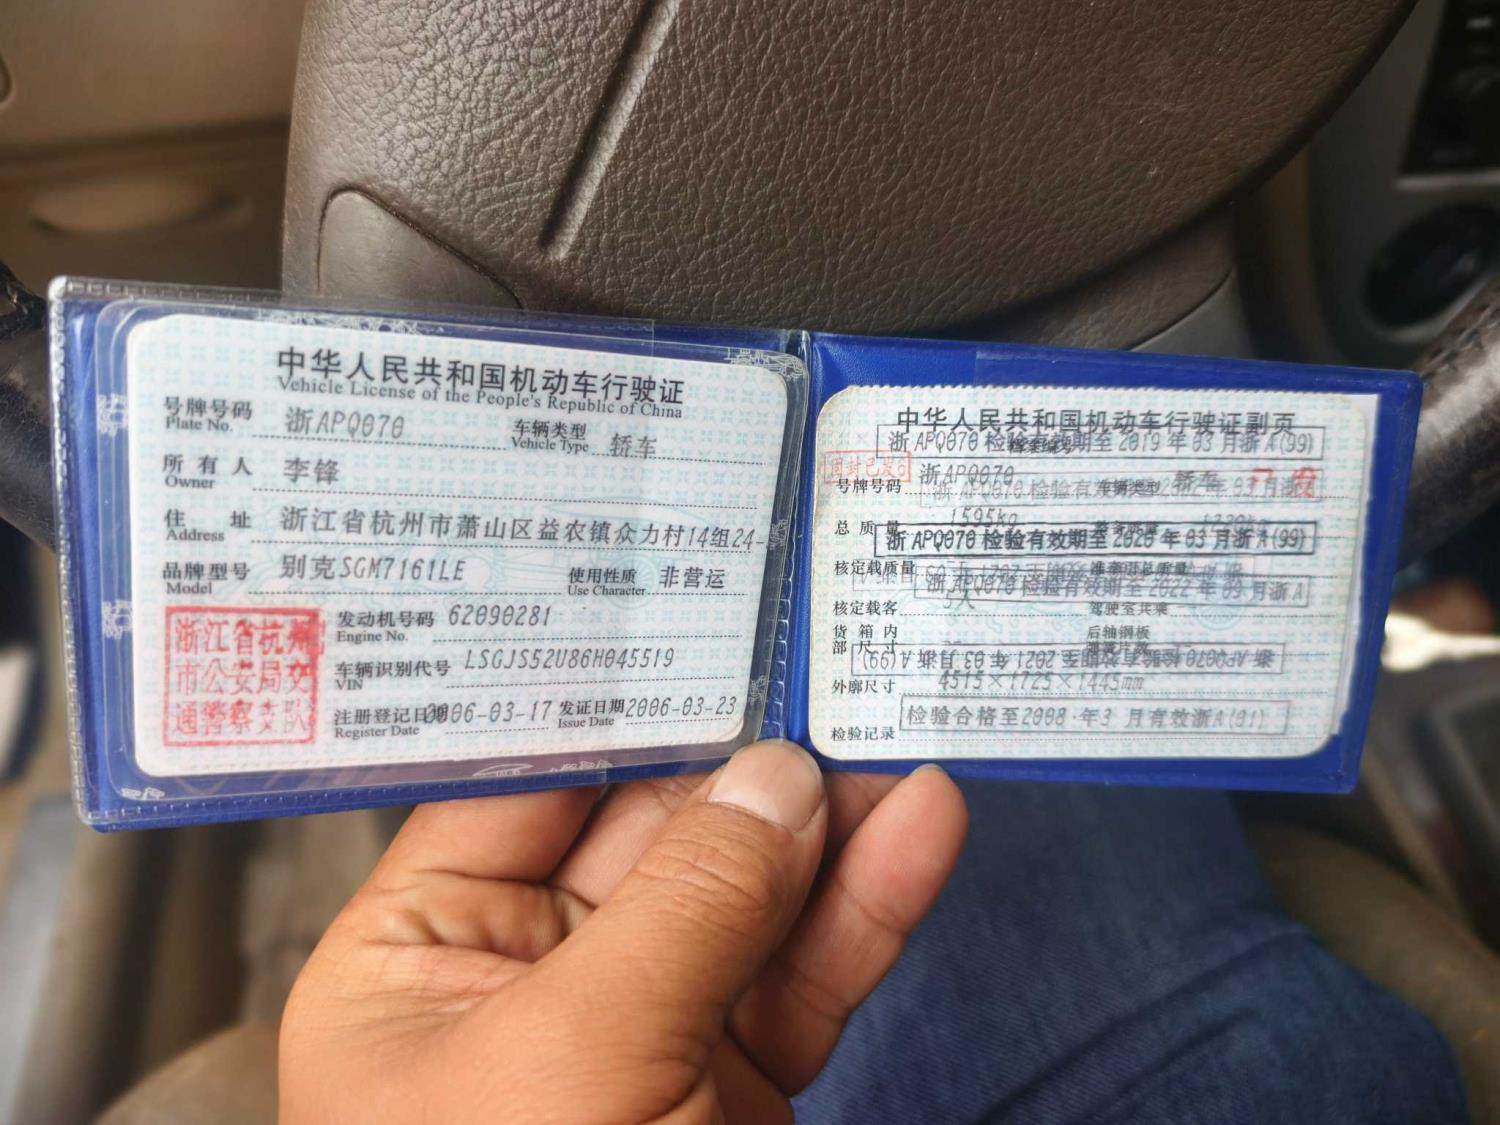 中华人民共和国机动车行驶证
Vehicle License of the People's Republic of China
号牌号码 浙APQ070 车辆类型 轿车
Plate No. Vehicle Type
所有人 李锋
Owner
住址 浙江省杭州市萧山区益农镇众力村14组24-
Address
品牌型号 别克SGM7161LE 使用性质 非营运
Model Use Character
浙江省杭州市公安局交通警察支队
发动机号码 62090281
Engine No.
车辆识别代号 LSGJS52U86H045519
VIN
注册登记日期 2006-03-17 发证日期 2006-03-23
Register Date Issue Date
中华人民共和国机动车行驶证副页
浙APQ070 检验有效期至2019年03月浙A(99)
号牌号码 浙APQ070 车辆类型 轿车
总质量 1595kg
浙APQ070 检验有效期至2020年03月浙A(99)
核定载质量 准牵引总质量
浙APQ070 检验有效期至2022年09月浙A
核定载客 5人 驾驶室共乘
货箱内部尺寸 后轴钢板
浙APQ070 检验有效期至2021年03月浙A(99)
外廓尺寸 4515×1725×1445mm
检验记录 检验合格至2008年3月有效浙A(01)